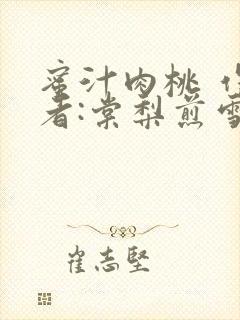 蜜汁肉桃 作
者:棠梨煎雪
崔志坚